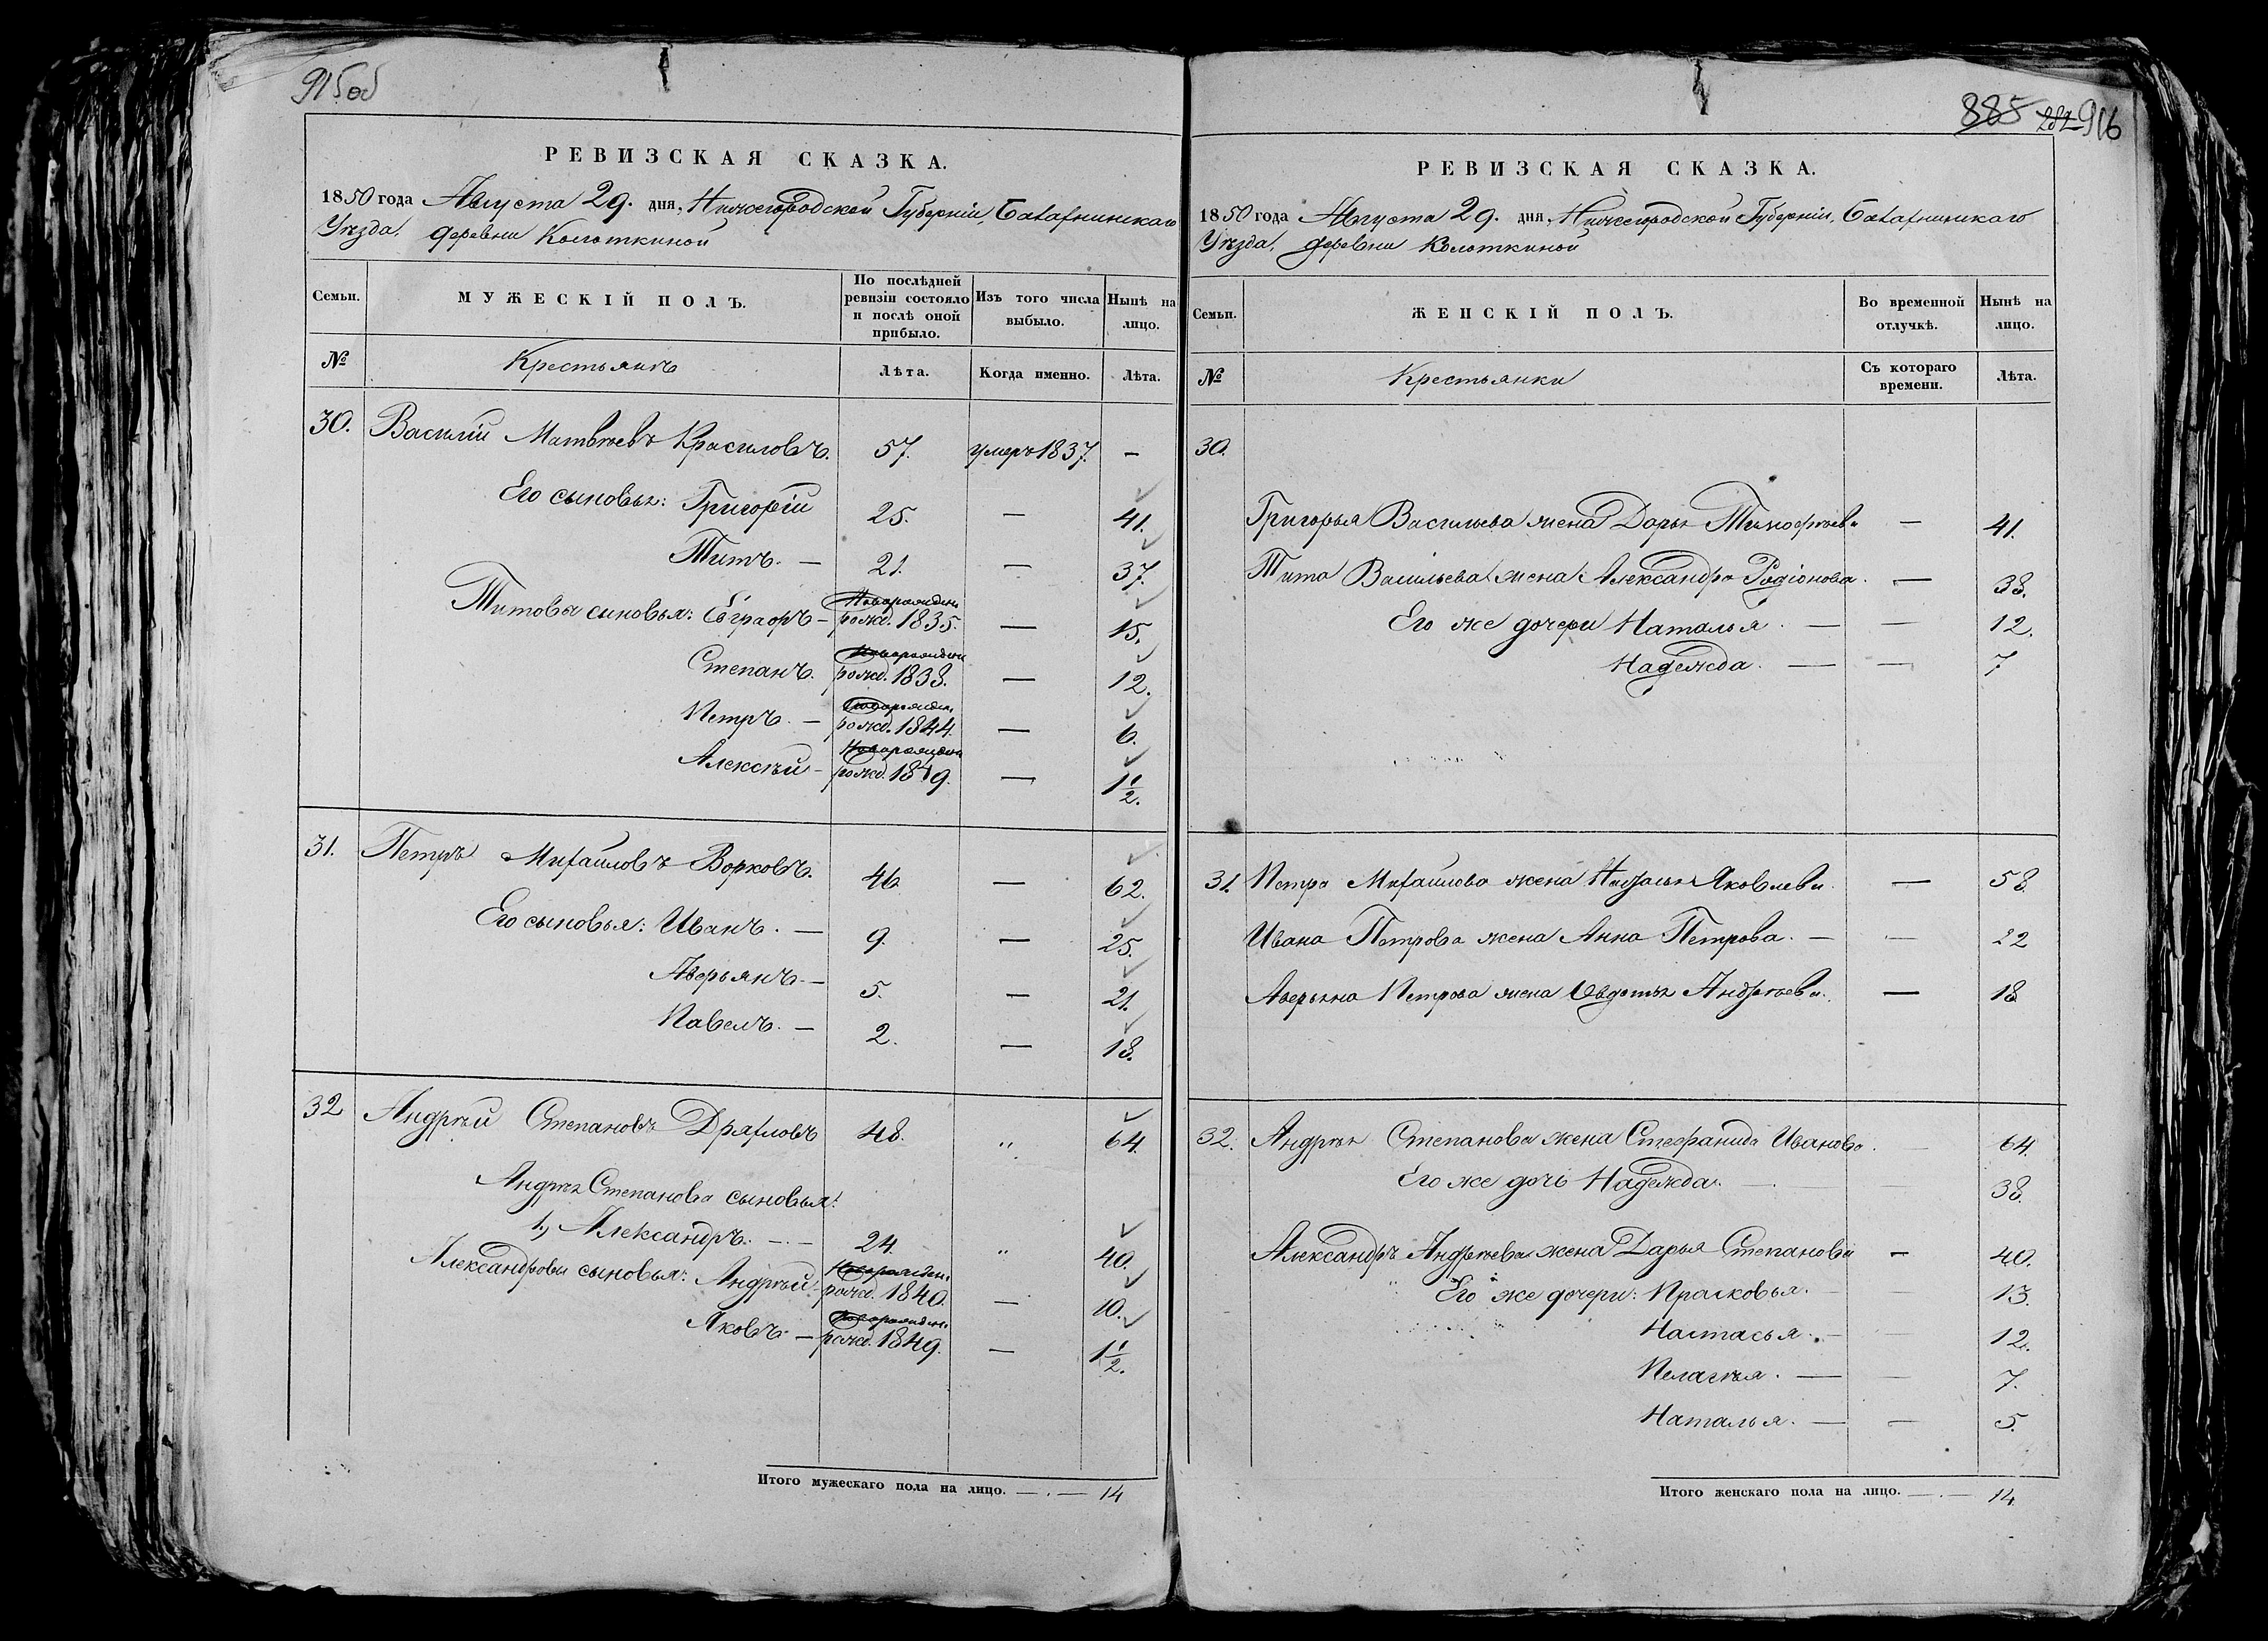 915об
РЕВИЗСКАЯ СКАЗКА.
1850 года Августа 29. дня, Нижегородской Губерніи, Балахнинскаго
Уѣзда, деревни Колоткиной
Семьи.
МУЖЕСКІЙ ПОЛЪ.
По послѣдней ревизіи состояло и послѣ оной прибыло.
Изъ того числа выбыло.
Нынѣ на лицо.
№ Крестьянъ Лѣта. Когда именно. Лѣта.
30. Василій Матвѣевъ Красиловъ. 57. умеръ 1837. —
Его сыновья: Григорій 25. — 41.
Титъ. — 21. — 37.
Титовы сыновья: Евграфъ — рожд. 1835. — 15.
Степанъ. рожд. 1838. — 12.
Петръ. — рожд. 1844. — 6.
Алексѣй — рожд. 1849. — 1½.
31. Петръ Михайловъ Ворковъ. 46 — 62.
Его сыновья: Иванъ. — 9. — 25.
Аверьянъ. — 5. — 21.
Павелъ. — 2. — 18.
32 Андрей Степановъ Дряхловъ 48. „ 64.
Андрея Степанова сыновья:
1, Александръ. — 24. „ 40.
Александровы сыновья: Андрей — рожд. 1840. — 10.
Яковъ. — рожд. 1849. — 1½.
Итого мужескаго пола на лицо. — . — 14
885 282 916
РЕВИЗСКАЯ СКАЗКА.
1850 года Августа 29. дня, Нижегородской Губерніи, Балахнинскаго
Уѣзда, деревни Колоткиной
Семьи.
ЖЕНСКІЙ ПОЛЪ.
Во временной отлучкѣ.
Нынѣ на лицо.
№ Крестьянки Съ котораго времени. Лѣта.
30.
Григорья Васильева жена Дарья Тимофѣева — 41.
Тита Васильева жена Александра Родіонова. — 38.
Его же дочери Наталья. — — 12.
Надежда. — — 7
31. Петра Михайлова жена Яковлева — 58.
Ивана Петрова жена Анна Петрова. — — 22
Аверьяна Петрова жена Овдотья Андреева. — 18
32. Андрея Степанова жена Стефанида Иванова. — 64.
Его же дочь Надежда. — — 38.
Александръ Андреева жена Дарья Степанова — 40.
Его же дочери: Прасковья. — 13.
Настасья. — 12.
Пелагѣя. — — 7.
Наталья. — — 5.
Итого женскаго пола на лицо. — . — 14